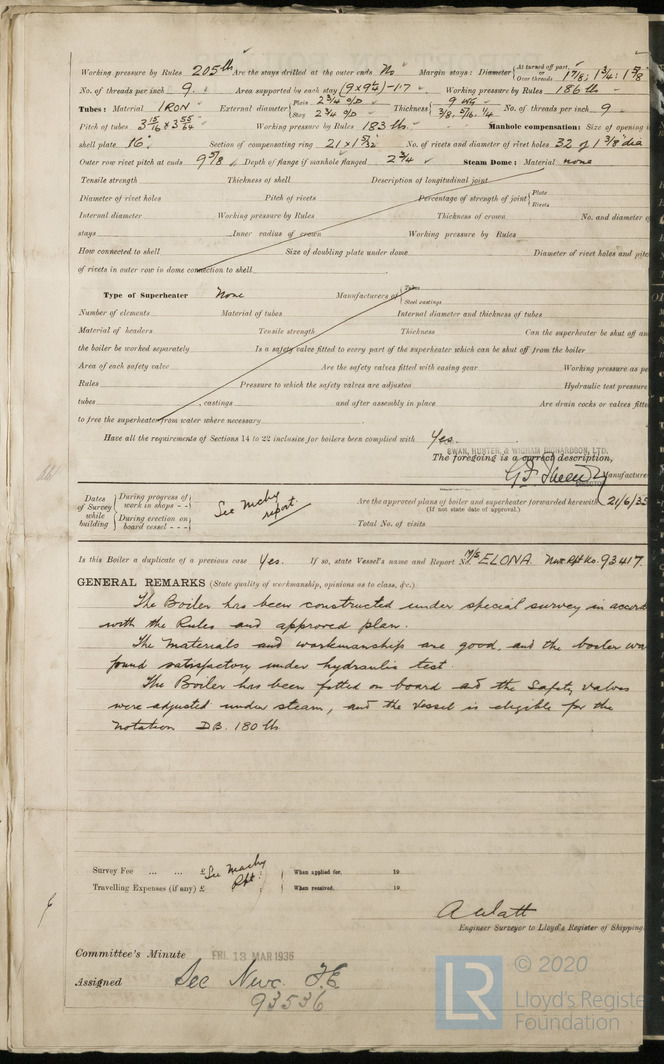 Working pressure by Rules 205 lb Are the stays drilled at the outer ends No Margin stays: Diameter { At turned off part, or Over threads 1 7/8; 1 3/4; 1 5/8
No. of threads per inch 9. Area supported by each stay (9 x 9 1/4) - 1.7 Working pressure by Rules 186 lb
Tubes: Material IRON External diameter { Plain 2 3/4 O/D Stay 2 3/4 O/D Thickness { 9 WG 3/8, 5/16, 1/4 No. of threads per inch 9
Pitch of tubes 3 15/16 x 3 55/64 Working pressure by Rules 183 lb. Manhole compensation: Size of opening i
shell plate 16" Section of compensating ring 21 x 1 5/32 No. of rivets and diameter of rivet holes 32 of 1 3/8 dia
Outer row rivet pitch at ends 9 5/8 Depth of flange if manhole flanged 2 3/4 Steam Dome: Material none
Tensile strength Thickness of shell Description of longitudinal joint
Diameter of rivet holes Pitch of rivets Percentage of strength of joint { Plate Rivets
Internal diameter Working pressure by Rules Thickness of crown No. and diameter o
stays Inner radius of crown Working pressure by Rules
How connected to shell Size of doubling plate under dome Diameter of rivet holes and pitc
of rivets in outer row in dome connection to shell
Type of Superheater None Manufacturers of { Tubes Steel castings
Number of elements Material of tubes Internal diameter and thickness of tubes
Material of headers Tensile strength Thickness Can the superheater be shut off an
the boiler be worked separately Is a safety valve fitted to every part of the superheater which can be shut off from the boiler
Area of each safety valve Are the safety valves fitted with easing gear Working pressure as pe
Rules Pressure to which the safety valves are adjusted Hydraulic test pressure
tubes , castings and after assembly in place Are drain cocks or valves fitte
to free the superheater from water where necessary
Have all the requirements of Sections 14 to 22 inclusive for boilers been complied with Yes.
SWAN, HUNTER, & WIGHAM RICHARDSON, LTD.
The foregoing is a correct description,
Manufacture
Dates of Survey while building { During progress of work in shops - - During erection on board vessel - - - } See Mchy report. Are the approved plans of boiler and superheater forwarded herewith 21/6/35
(If not state date of approval.)
Total No. of visits
Is this Boiler a duplicate of a previous case Yes. If so, state Vessel's name and Report No. M/S ELONA Nwc Rpt No. 93417.
GENERAL REMARKS (State quality of workmanship, opinions as to class, &c.)
The Boiler has been constructed under special survey in accord
with the Rules and approved plan.
The Materials and workmanship are good, and the boiler wa
found satisfactory under hydraulic test.
The Boiler has been fitted on board and the Safety valves
were adjusted under steam, and the vessel is eligible for the
notation DB. 180 lb
Survey Fee ... ... £ See Machy Rpt. When applied for, 19
Travelling Expenses (if any) £ When received, 19
A Watt
Engineer Surveyor to Lloyd's Register of Shipping
Committee's Minute FRI. 13 MAR 1936
Assigned See Nwc. F.E.
93536
LR © 2020
Lloyd's Register
Foundation